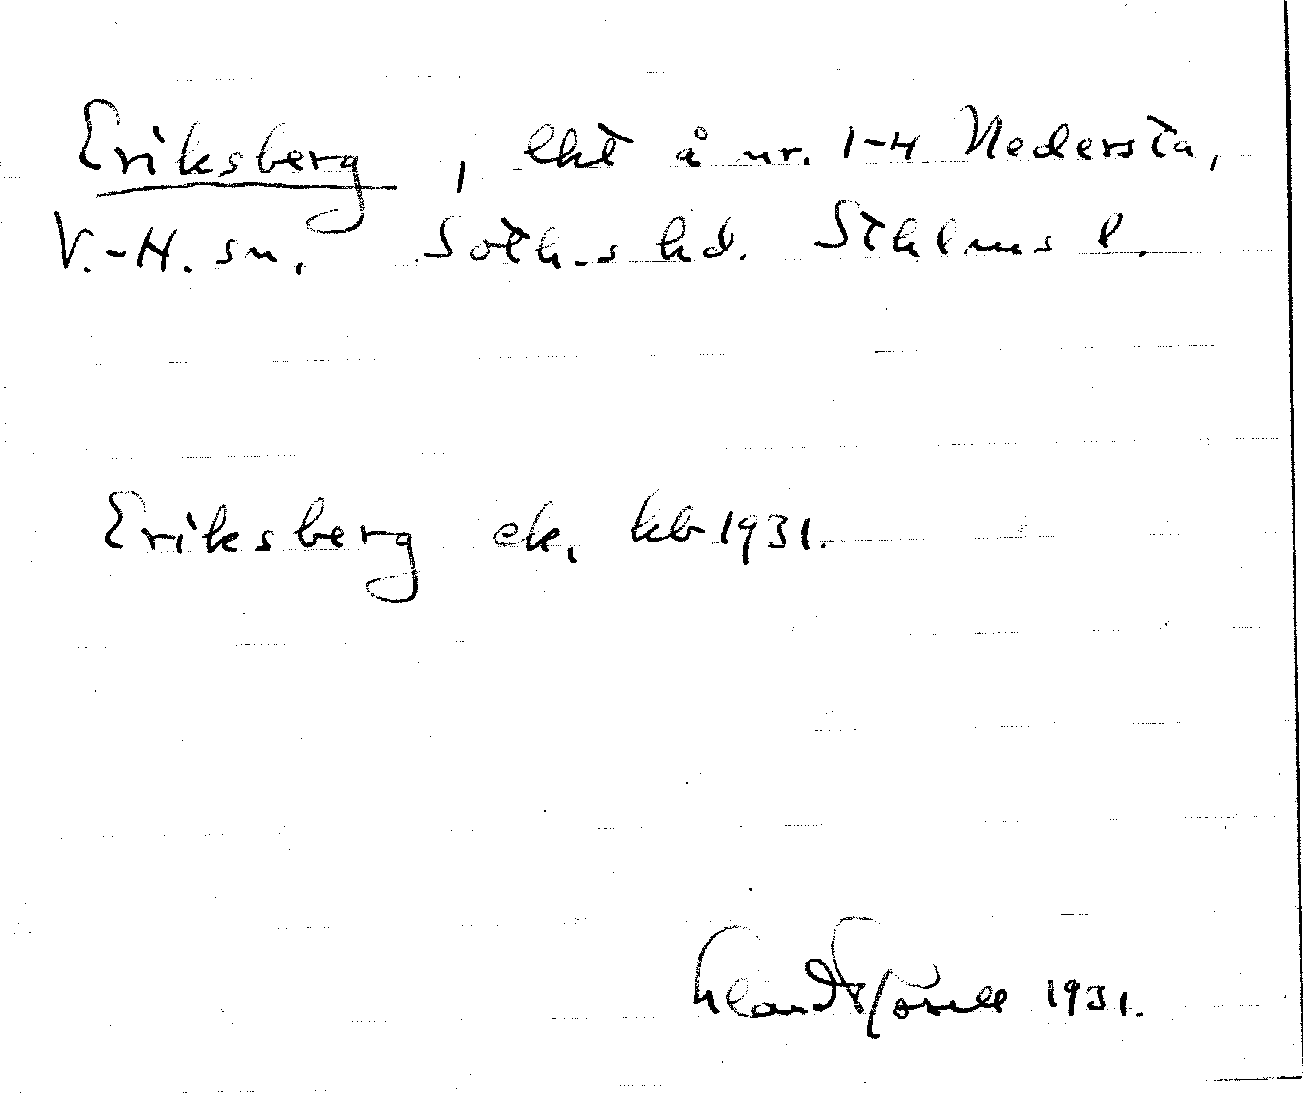 Eriksberg, lht å nr. 1-4 Nedersta,
V.-H. sn. Soth-s hd. Sthlms l.
Eriksberg ek. kb 1931.
1931.